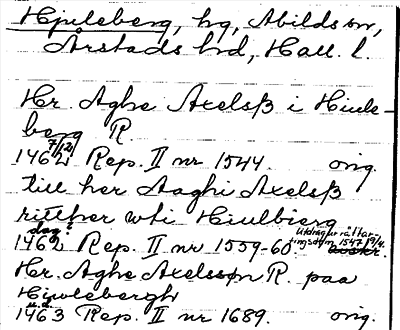 Hjuleberg, hg, Abilds sn,
Årstads hd, Hall. l.
Hr. Aghe Axelsß i Hiule-
berg R.
7/12
1462 Rep. II nr 1544. orig.
till her Aaghi Axelsß
ritther wti Hiulbierg
dag? Utdrag ur rättar-
1462 Rep. II nr 1559-60. tingsdom 1547 19/4.
Hr. Aghe Axelssøn R. paa
Hiwlebergh
u.d.
1463 Rep. II nr 1689. orig.